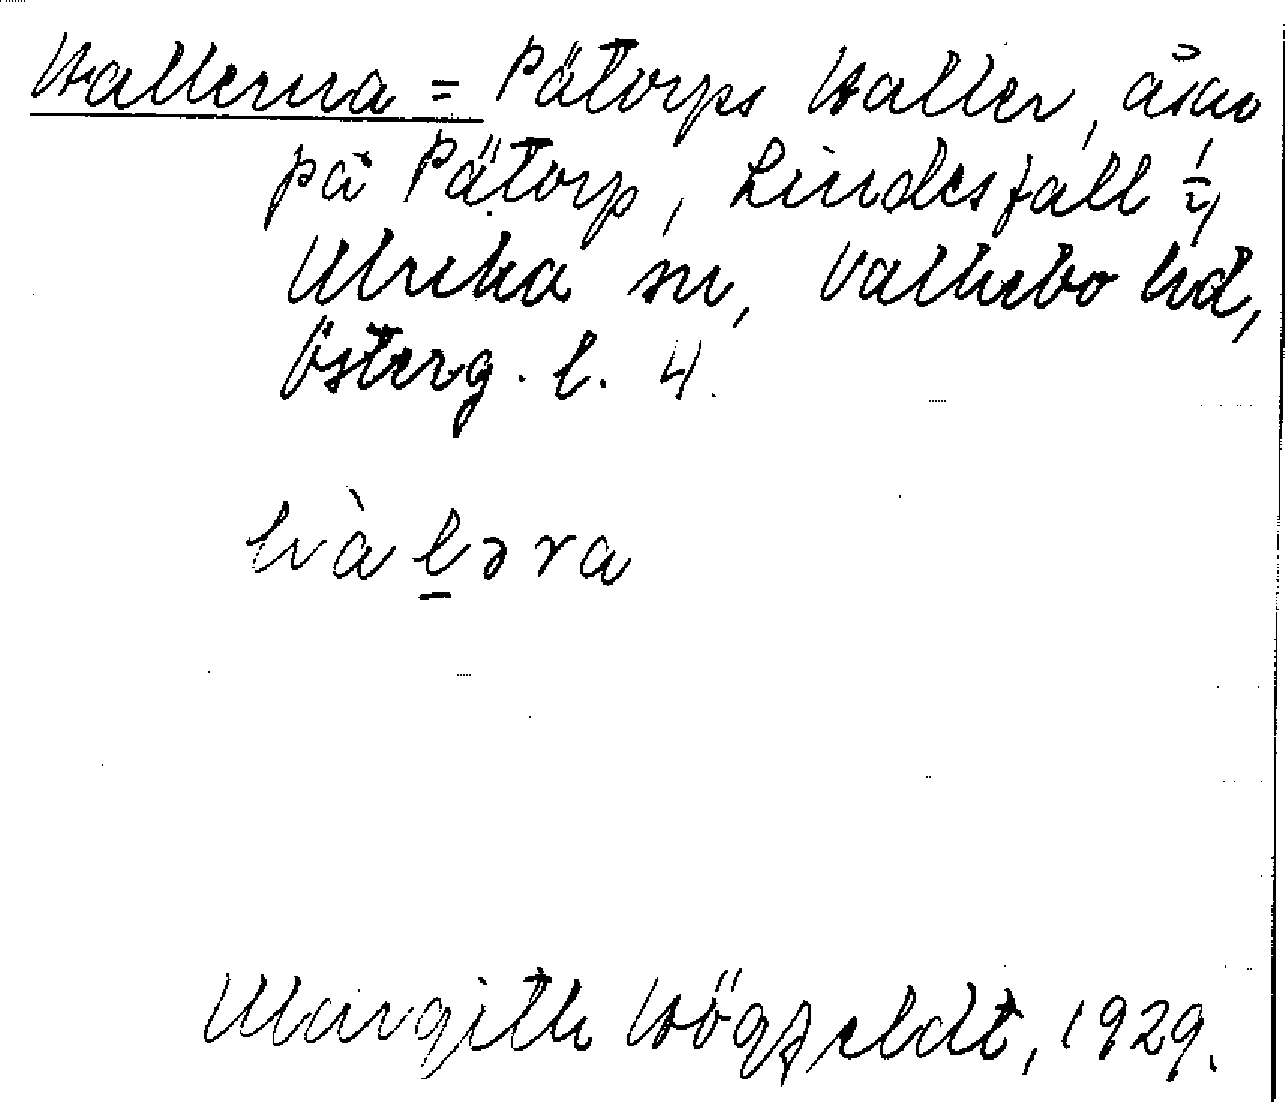 Hallerna = Pätorps Haller, åkar
på Pätorp, Lindesfall 1/4
Ulrika sn, Valkebo hd,
Österg. l. 4.
hàləra
Margith Högfeldt, 1929.